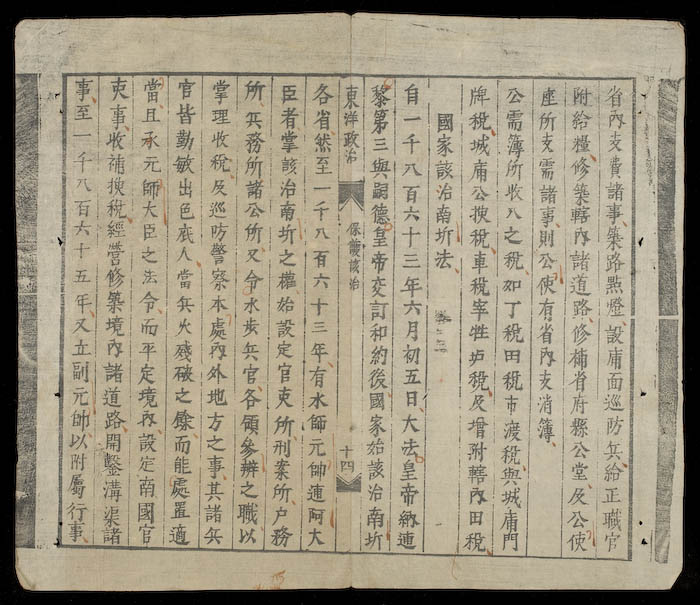 省内支費諸事築路點燈設庯面巡防兵給正職官
附給糧修築轄内諸道路修補省府縣公堂及公使
座所支需諸事則公使有省内支消簿
公需簿所收入之稅如丁稅田稅市渡稅與城庯門
牌稅城庯公搜稅車稅宰牲垆稅及增附轄内田稅
國家該治南圻法
自一千八百六十三年六月初五日大法皇帝納連
黎第三與嗣德皇帝交訂和約後國家始該治南圻
東洋政治
保護該治
十四
各省然至一千八百六十三年有水師元帥連阿大
臣者掌該治南圻之權始設定官吏所刑案所户務
所兵務所諸公所又令水步兵官各領參辦之職以
掌理收稅及巡防警察本處内外地方之事其諸兵
官皆勤敏出色庶人當兵火殘破之餘而能處置適
當且承元帥大臣之法令而平定境内設定南國官
吏事收補搜稅經營修築境内諸道路開鑿溝渠諸
事至一千八百六十五年又立副元帥以附屬行事